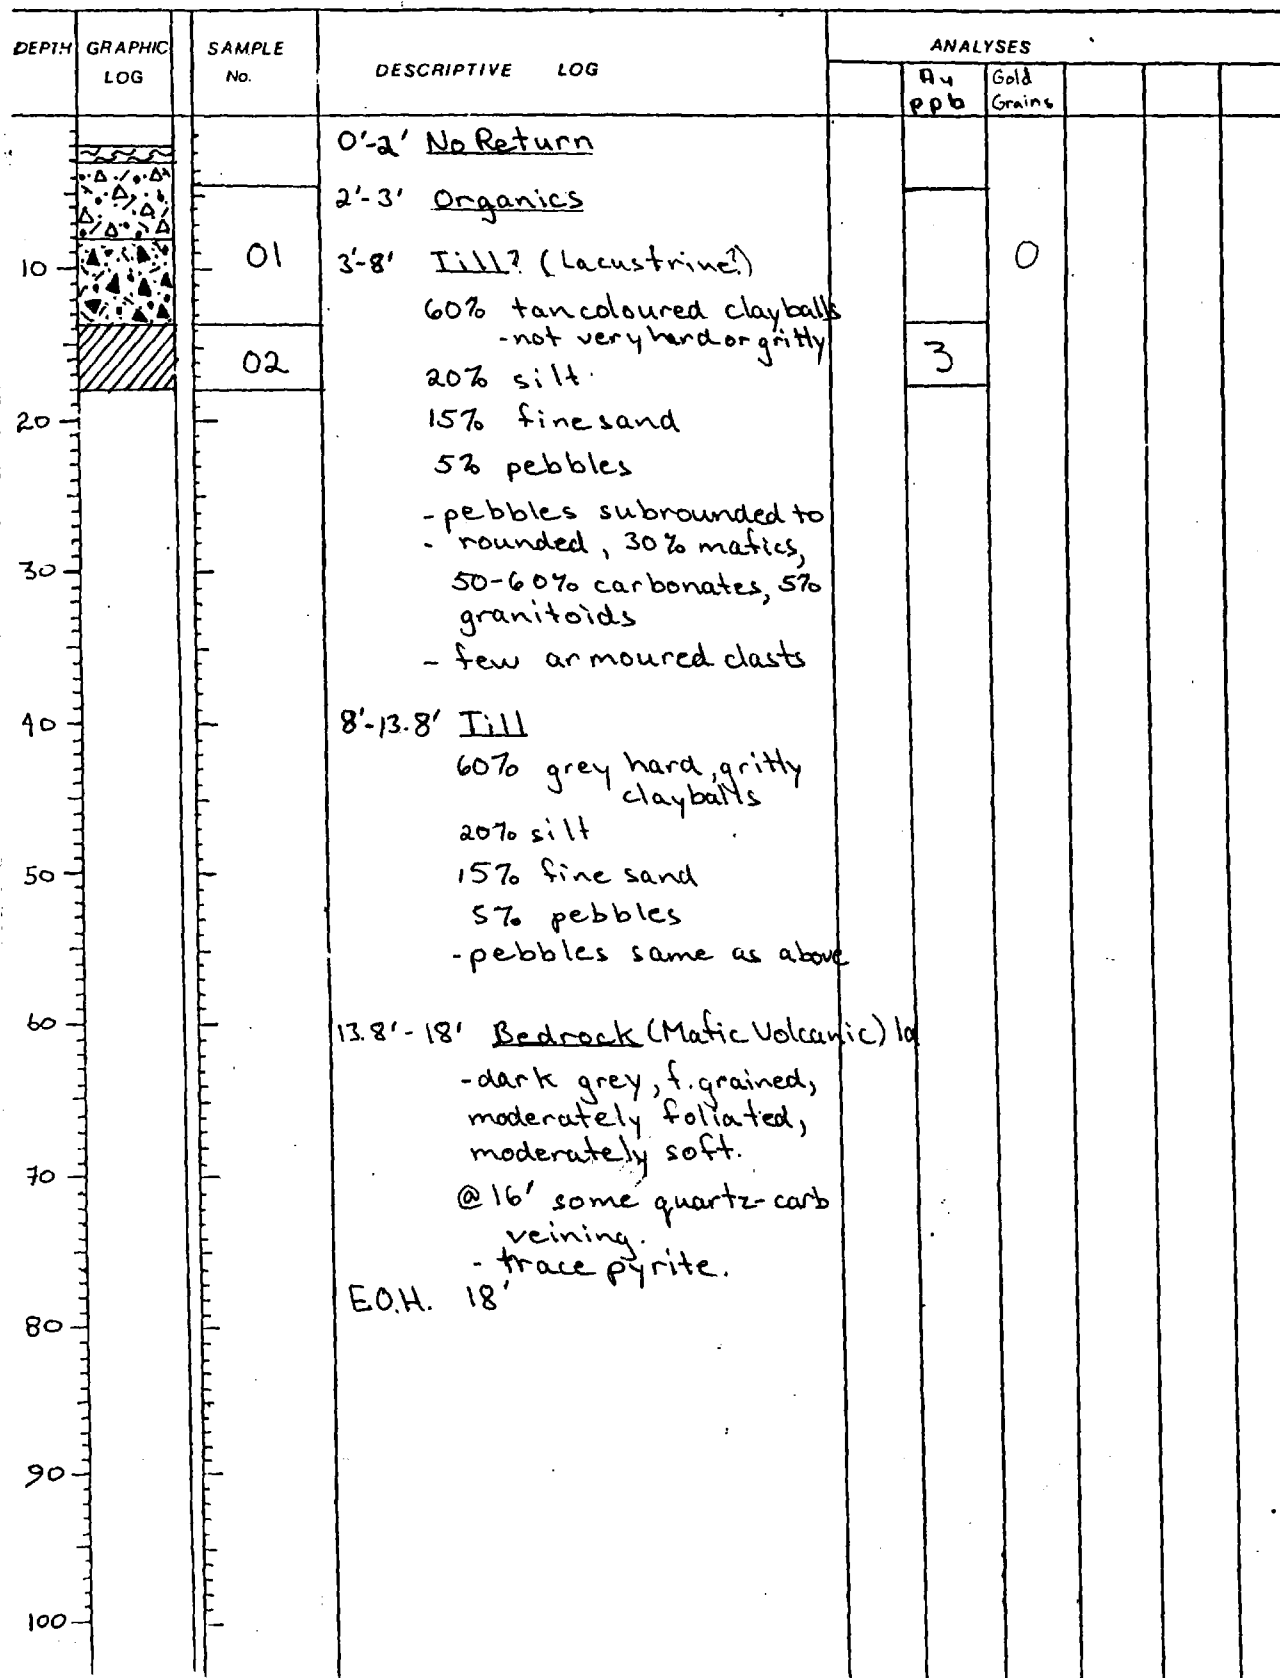 DEPTH GRAPHIC LOG SAMPLE No. DESCRIPTIVE LOG ANALYSES
Au ppb Gold Grains
0'-2' No Return
2'-3' Organics
01 3'-8' Till? (Lacustrine?) 0
10
60% tan coloured clayballs
-not very hard or gritty
02 3
20% silt
20 15% fine sand
5% pebbles
- pebbles subrounded to
- rounded, 30% mafics,
30
50-60% carbonates, 5%
granitoids
- few armoured clasts
40 8'-13.8' Till
60% grey hard, gritty
clayballs
20% silt
50 15% fine sand
5% pebbles
-pebbles same as above
60 13.8'-18' Bedrock (Mafic Volcanic)
-dark grey, f. grained,
moderately foliated,
moderately soft.
70
@ 16' some quartz-carb
veining.
- trace pyrite.
E.O.H. 18'
80
90
100